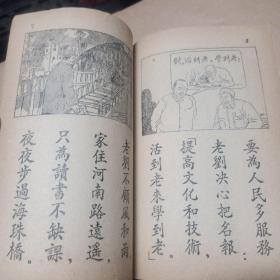 要為人民多服務，
老劉決心把名報，
「提高文化和技術，
活到老來學到老」。
老劉不顧風和雨，
家住河南路遙遠，
只為讀書不缺課，
夜夜步過海珠橋。